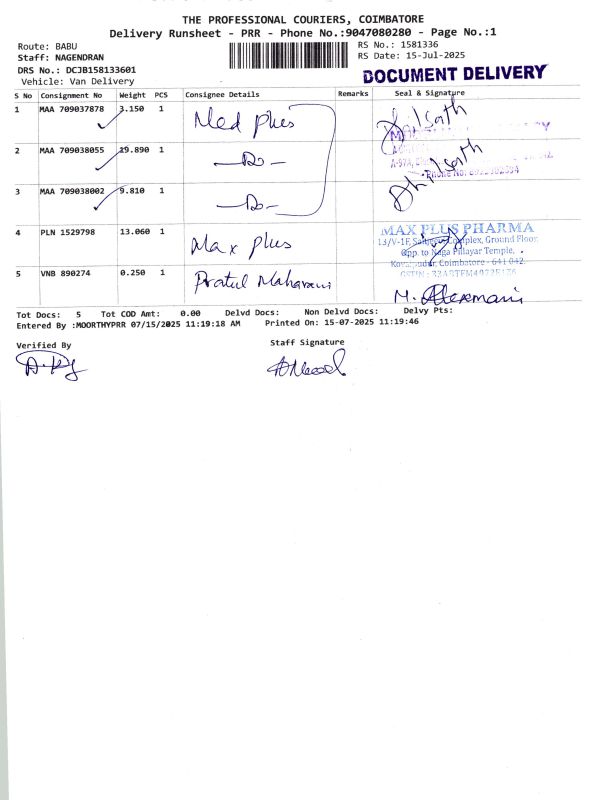 THE PROFESSIONAL COURIERS, COIMBATORE
Delivery Runsheet - PRR - Phone No.:9047080280 - Page No.:1
Route: BABU
RS No.: 1581336
Staff: NAGENDRAN
RS Date: 15-Jul-2025
DRS No.: DCJB158133601
Vehicle: Van Delivery
DOCUMENT DELIVERY
S No Consignment No Weight PCS Consignee Details Remarks Seal & Signature
1 MAA 709037878 3.150 1 Med plus
2 MAA 709038055 19.890 1 - Do -
3 MAA 709038002 9.810 1 - Do -
4 PLN 1529798 13.060 1 Max plus
MAX PLUS PHARMA
13/V-1F, Complex, Ground Floor,
Opp. to Naga Pillayar Temple,
Coimbatore - 641 042.
5 VNB 890274 0.250 1 Pratul
Tot Docs: 5 Tot COD Amt: 0.00 Delvd Docs: Non Delvd Docs: Delvy Pts:
Entered By :MOORTHYPRR 07/15/2025 11:19:18 AM Printed On: 15-07-2025 11:19:46
Verified By
Staff Signature